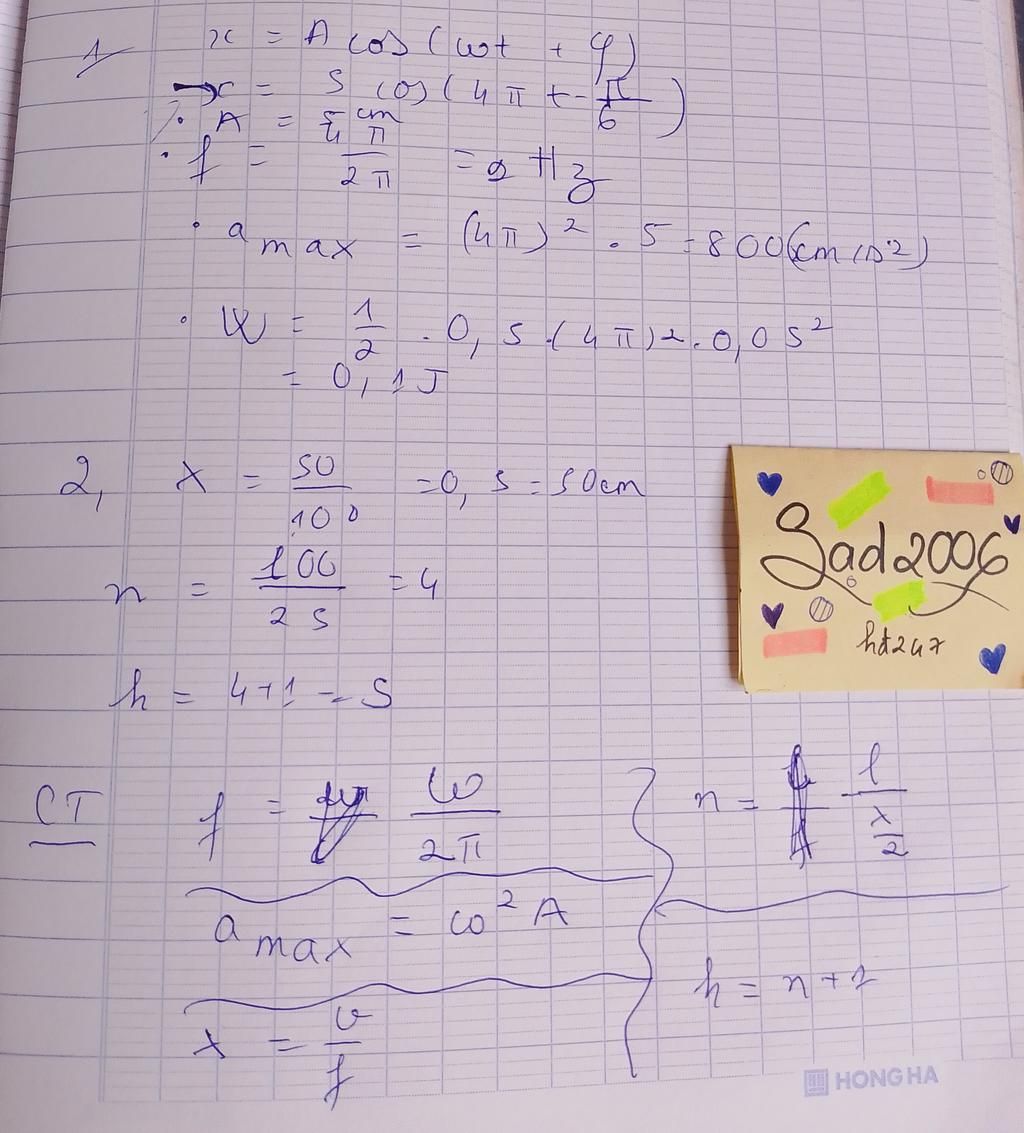 1/ x = A cos(ωt + φ)
x = 5 cos(4πt - π/6)
• A = 5 cm
• f = 4π/2π = 2 Hz
• a max = (4π)² . 5 = 800(cm/s²)
• W = 1/2 . 0,5 . (4π)2 . 0,05²
= 0,1J
2, λ = 50/100 = 0,5 = 50cm
n = 100/25 = 4
h = 4+1 = 5
Sad2006
hd247
CT f = ω/2π
a max = ω² A
λ = v/f
n = l/(λ/2)
h = n+1
HONG HA